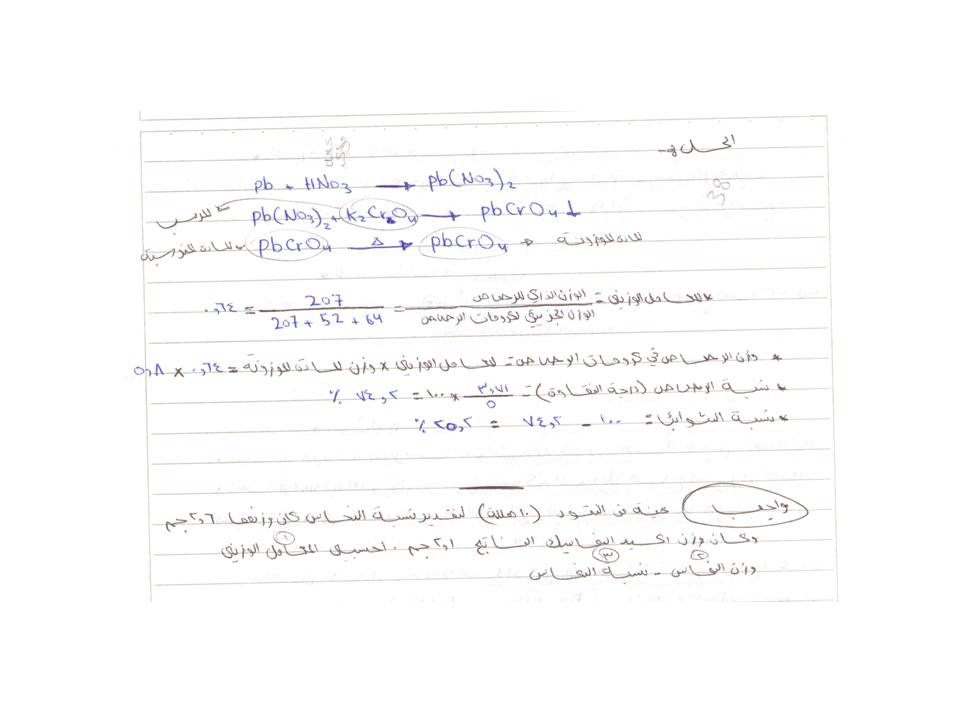 الحل :-
pb + HNO3 → pb(NO3)2
pb(NO3)2 + K2CrO4 → pbCrO4 ↓
pbCrO4 →Δ pbCrO4 المادة الموزونة
* المعامل الوزني = الوزن الذري للرصاص / الوزن الجزيئي لكرومات الرصاص = 207 / 207 + 52 + 64 = ٠,٦٤
* وزن الرصاص في كرومات الرصاص = المعامل الوزني × وزن المادة الموزونة = ٠,٦٤ × ٥,٨
* نسبة الرصاص (درجة النقاوة) = ٣,٧١ / ٥ × ١٠٠ = ٧٤,٢ ٪
* نسبة الشوائب = ١٠٠ - ٧٤,٢ = ٢٥,٢ ٪
واجب عينة من النقود (١٠ هللة) لتقدير نسبة النحاس كان وزنها ٢,٦ جم
وكان وزن اكسيد النحاسيك الناتج ٢,١ جم . احسبي ١ المعامل الوزني
٢ وزن النحاس - ٣ نسبة النحاس